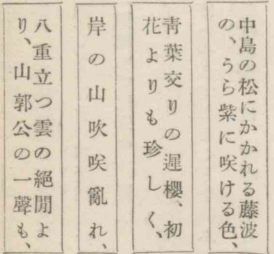 中島の松にかかれる藤波
の、うら紫に咲ける色、
青葉交りの遲櫻、初
花よりも珍しく、
岸の山吹咲亂れ、
八重立つ雲の絕間よ
り、山郭公の一聲も、